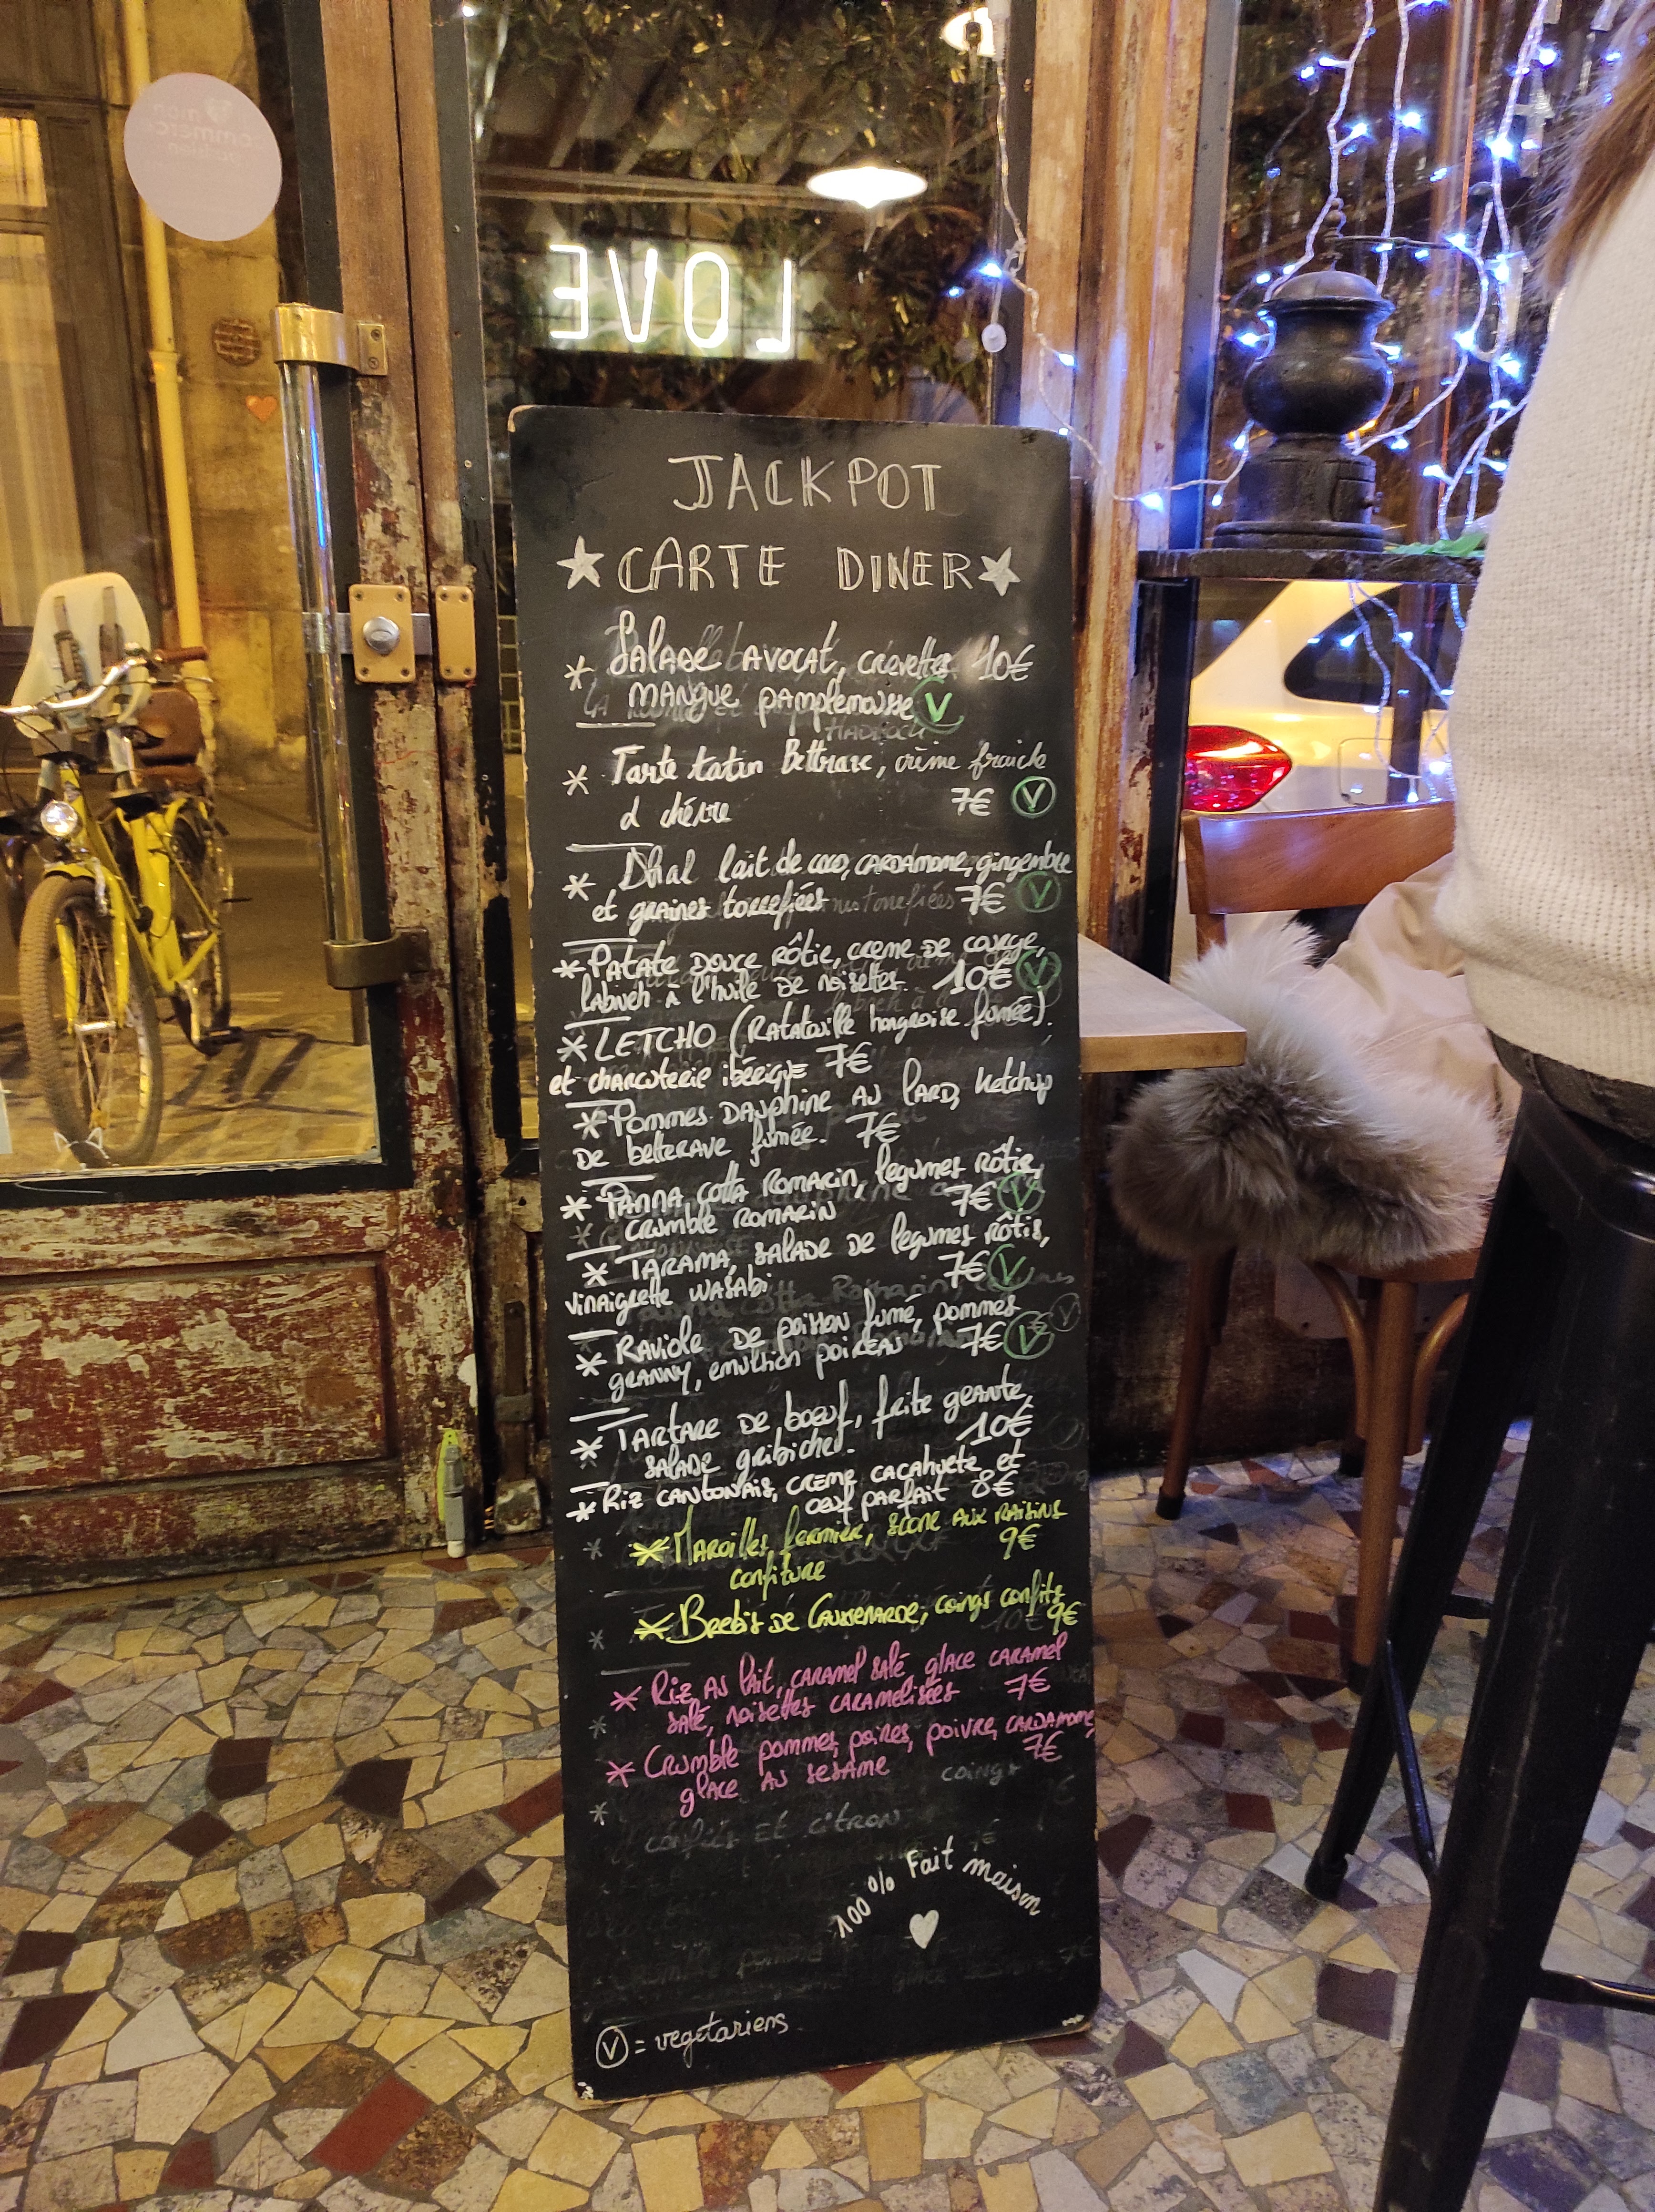 LOVE
JACKPOT
CARTE DINER
* Salade avocat, crevettes 10€
mangue pamplemousse V
* Tarte tatin Bettrave, crème fraiche
d chévre 7€ V
* Dhal lait de coco, cardamome, gingembre
et graines torrefiées 7€ V
* Patate douce rôtie, creme de courge,
labneh à l'huile de noisettes. 10€ V
* LETCHO (Ratatouille hongroise fumée).
et charcuterie ibérique 7€
* Pommes Dauphine au lard, ketchup
de betterave fumée. 7€
* Panna cotta Romarin, legumes rôtis,
crumble romarin 7€ V
* Tarama, salade de legumes rôtis,
vinaigrette wasabi 7€ V
* Raviole de poisson fumé, pommes
granny, emulsion poireau 7€ V
* Tartare de bœuf, frite geante,
salade gribiche. 10€
* Riz cantonais, creme cacahuete et
œuf parfait 8€
* Maroilles fermier, scone aux raisins
confiture 9€
* Brebis de Caussenarde, coings confits
9€
* Riz au lait, caramel salé, glace caramel
salé, noisettes caramelisées 7€
* Crumble pommes, poires, poivre, cardamome,
glace au sesame 7€
coings
confits et citron
100% Fait maison
V = vegetariens